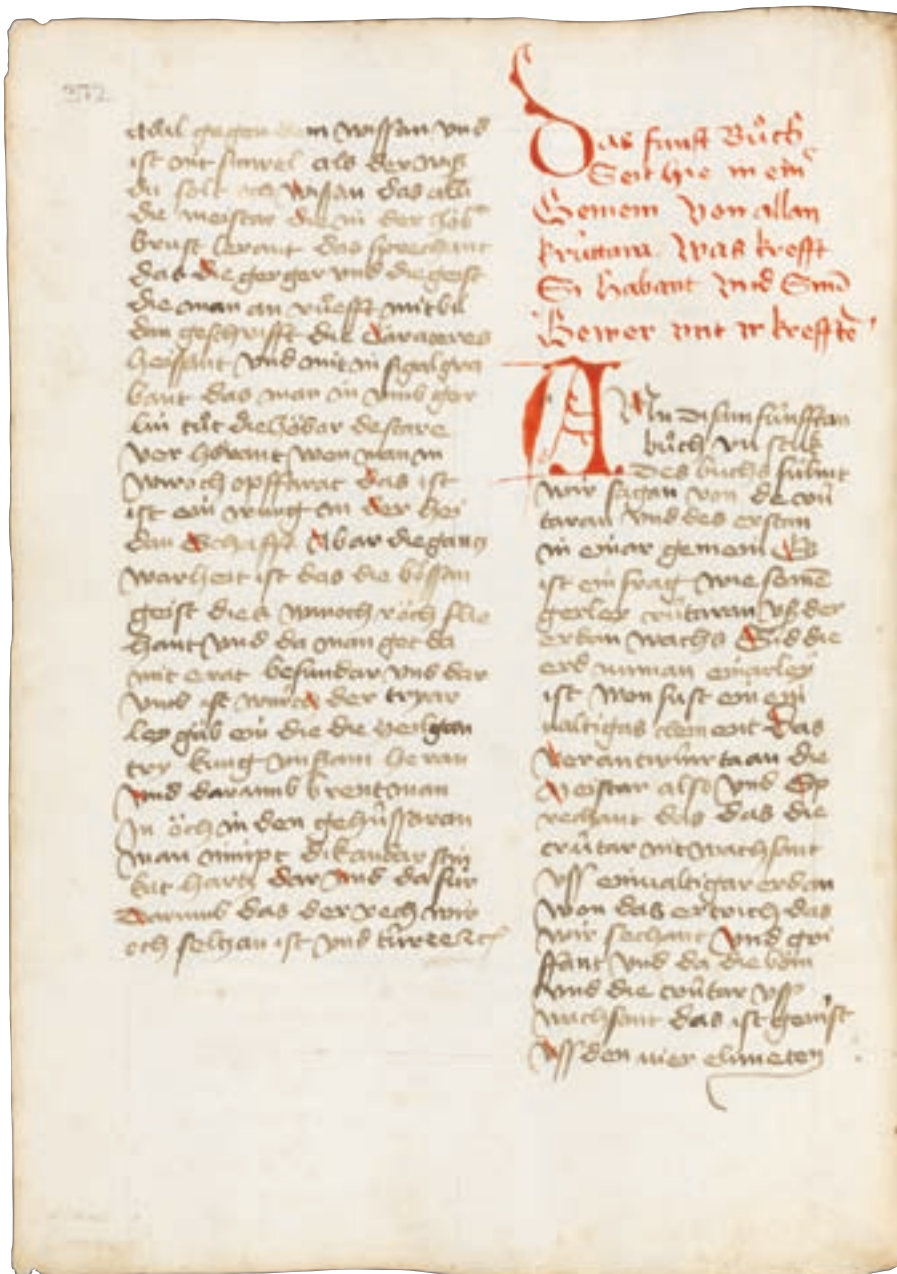 272
edil gegen dem wissen vnd
ist nit so wel als der wiß
du solt och wissen das alli
die meister die in der
kunst lerant das sprechant
das die gerger vnd die geist
die man an rüefft mit bil
den geschrifft die Caracteres
heissant vnd mit in sigel gra
bant das man in vmb ger
lin tüt die höbar des tare
ver hörant wen man in
wiroch opfferat das ist
ist ein irung in der hei
den schafft Abar die gantz
warheit ist das die bössen
geist dies wiroch röch flie
hant vnd da man get da
mit erat besundar vnd dar
vmb ist wirch der tryar
ley gab ein die die heilgen
try kung vnssam heran
vnd darumb brent man
In öch in den gehüssaran
man nimpt dik andar
hat hartz dar vnd da für
Darumb das der rech wir
och seltzan ist vnd
Das funft Bůch
Seit hie in ein
Gemein Von allan
krütara Was krefft
Si habant Vnd Sind
Bewer mit ir krefften
AN disan fünfftan
bůch vn stuk
Des buchs sülint
wir sagan von de crü
taran vnd des erstan
in einar gemein Es
ist ein frag wie
gerley crütaran vß der
erdan wachs Sid die
erd numan einarley
ist Won si ist ein ein
ualtigas element Das
verantwürtaan die
Meistar also vnd Sp
rechant das das die
crütar nit wachsant
vss einualtigar erdan
won das ertrich das
wir sechant vnd gri
ffant vnd da die böm
vnd die crütar vss
wachsant das ist gemist
vss den uier elimeten